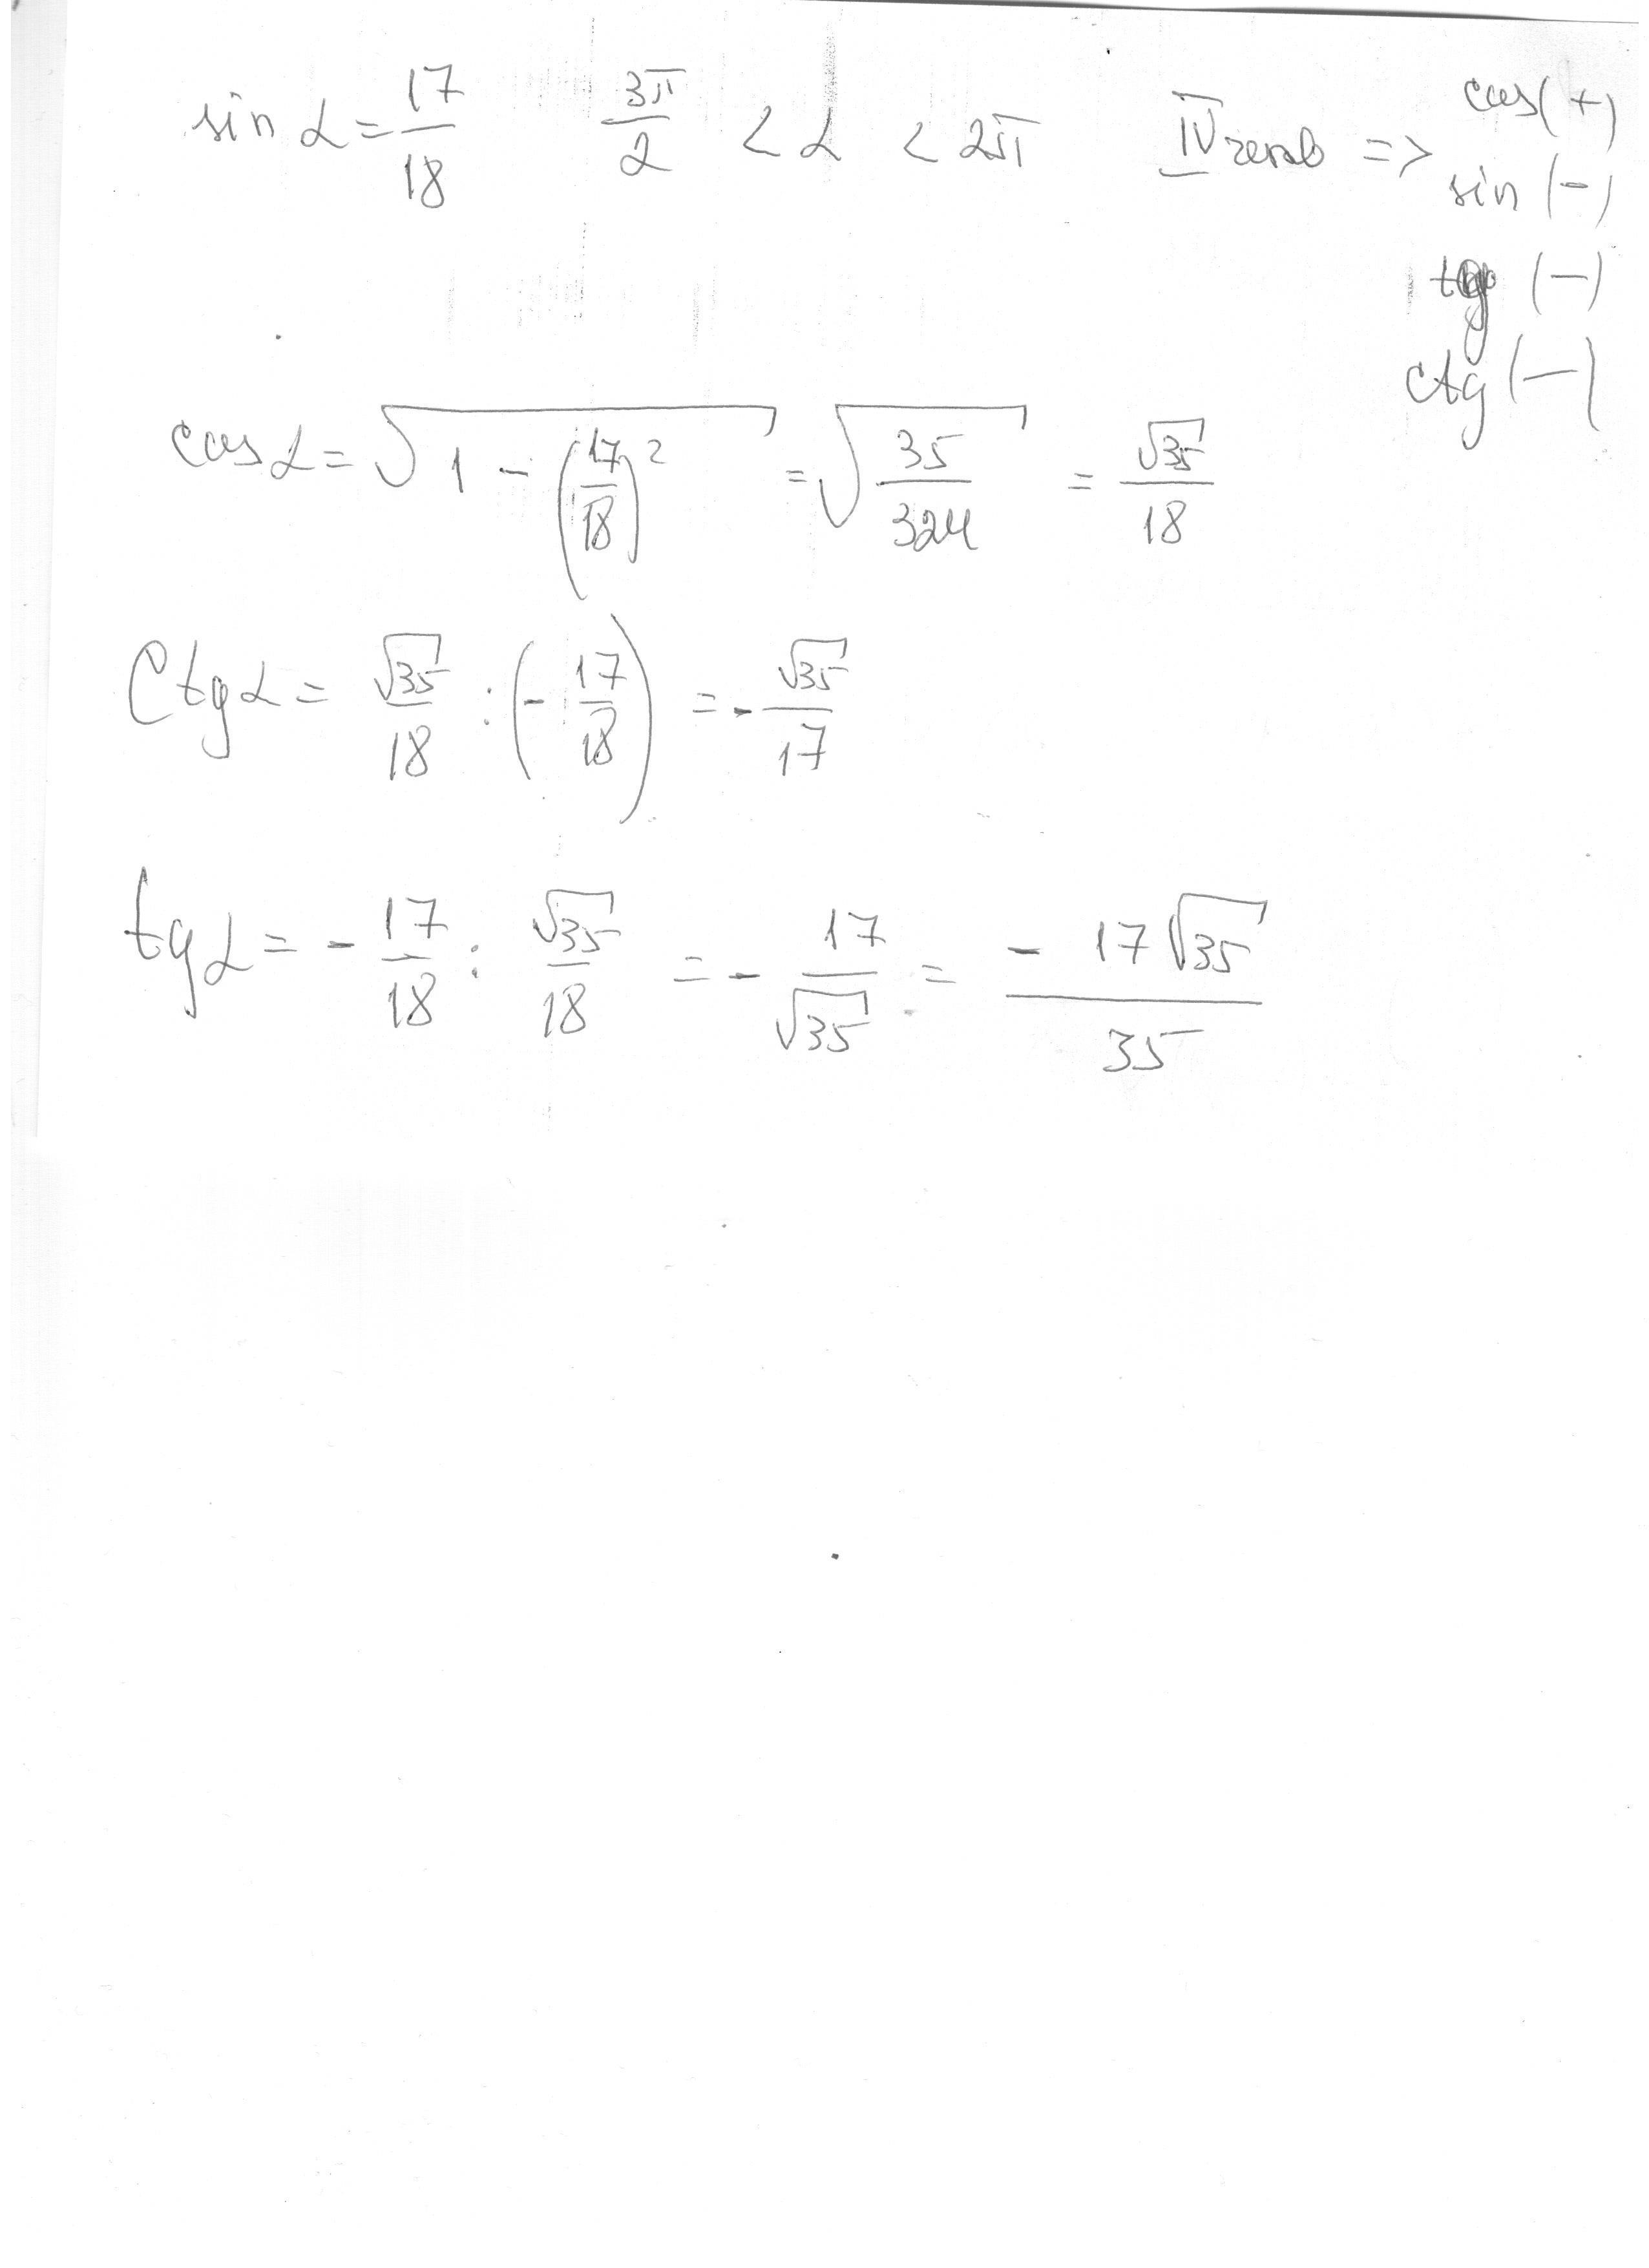 sin α = 17/18 3π/2 < α < 2π IV => cos(+)
sin (-)
tg (-)
ctg (-)
cos α = √(1 - (17/18)²) = √(35/324) = √35/18
Ctg α = √35/18 : (- 17/18) = - √35/17
tg α = - 17/18 : √35/18 = - 17/√35 = - 17√35/35